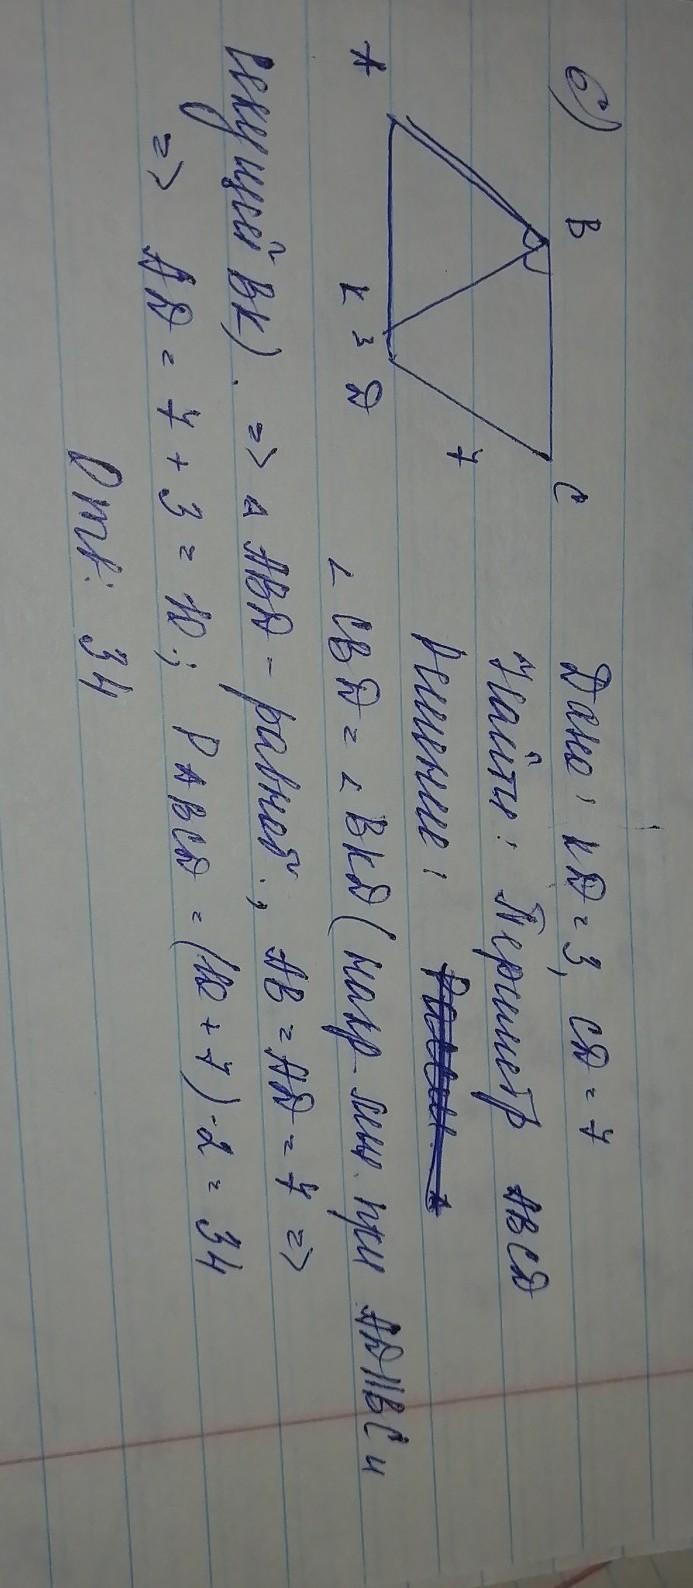 б)
B
C
A
K
3
D
7
Дано: KD = 3, CD = 7
Найти: Периметр ABCD
Решение:
∠CBD = ∠BKD (накр. леж. при AD||BC и
секущей BK). => △ABD - равноб., AB = AD = 7 =>
=> AD = 7 + 3 = 10; P ABCD = (10 + 7)·2 = 34
Отв: 34